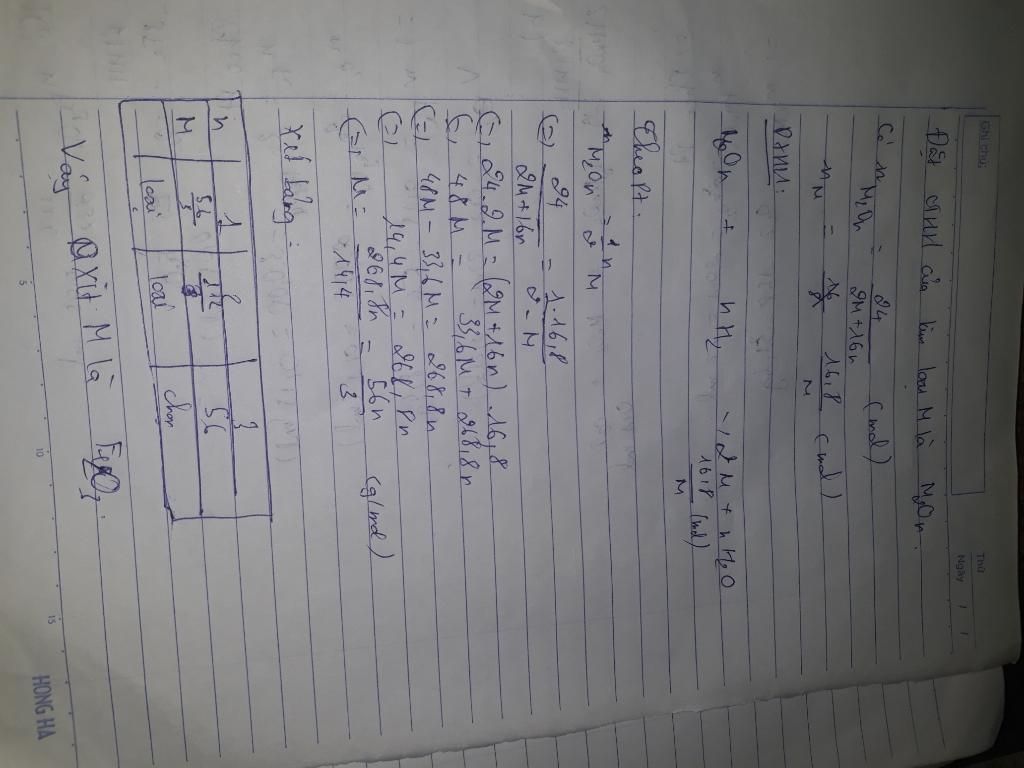 Thứ
Ngày / /
Đặt CTHH của kim loại M là M₂On.
Có n M₂On = 24/(2M+16n) (mol)
n M = 16,8/M (mol)
PTHH:
M₂On + nH₂ → 2M + nH₂O
16,8/M (mol)
Theo Pt:
n M₂On = 1/2 n M
(=) 24/(2M+16n) = 1.16,8/2.M
(=) 24.2M = (2M+16n).16,8
(=) 48M = 33,6M + 268,8n
(=) 48M - 33,6M = 268,8n
(=) 14,4M = 268,8n
(=) M = 268,8n/14,4 = 56n/3 (g/mol)
Xét bảng:
n 1 2 3
M 56/3 112/3 56
loại loại chọn
Vậy Oxit M là Fe₂O₃.
5 10 15
HONG HA